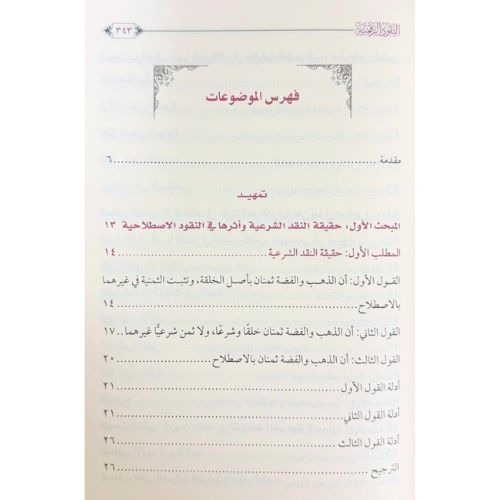 النقود الرقمية
٣٤٣
فهرس الموضوعات
مقدمة ................ ٦
تمهيد
المبحث الأول: حقيقة النقد الشرعية وأثرها في النقود الاصطلاحية ١٣
المطلب الأول: حقيقة النقد الشرعية ................ ١٤
القول الأول: أن الذهب والفضة ثمنان بأصل الخلقة، وتثبت الثمنية في غيرهما
بالاصطلاح ................ ١٤
القول الثاني: أن الذهب والفضة ثمنان خلقًا وشرعًا، ولا ثمن شرعيًّا غيرهما.. ١٧
القول الثالث: أن الذهب والفضة ثمنان بالاصطلاح ................ ٢٠
أدلة القول الأول ................ ٢١
أدلة القول الثاني ................ ٢١
أدلة القول الثالث ................ ٢٦
الترجيح ................ ٢٦